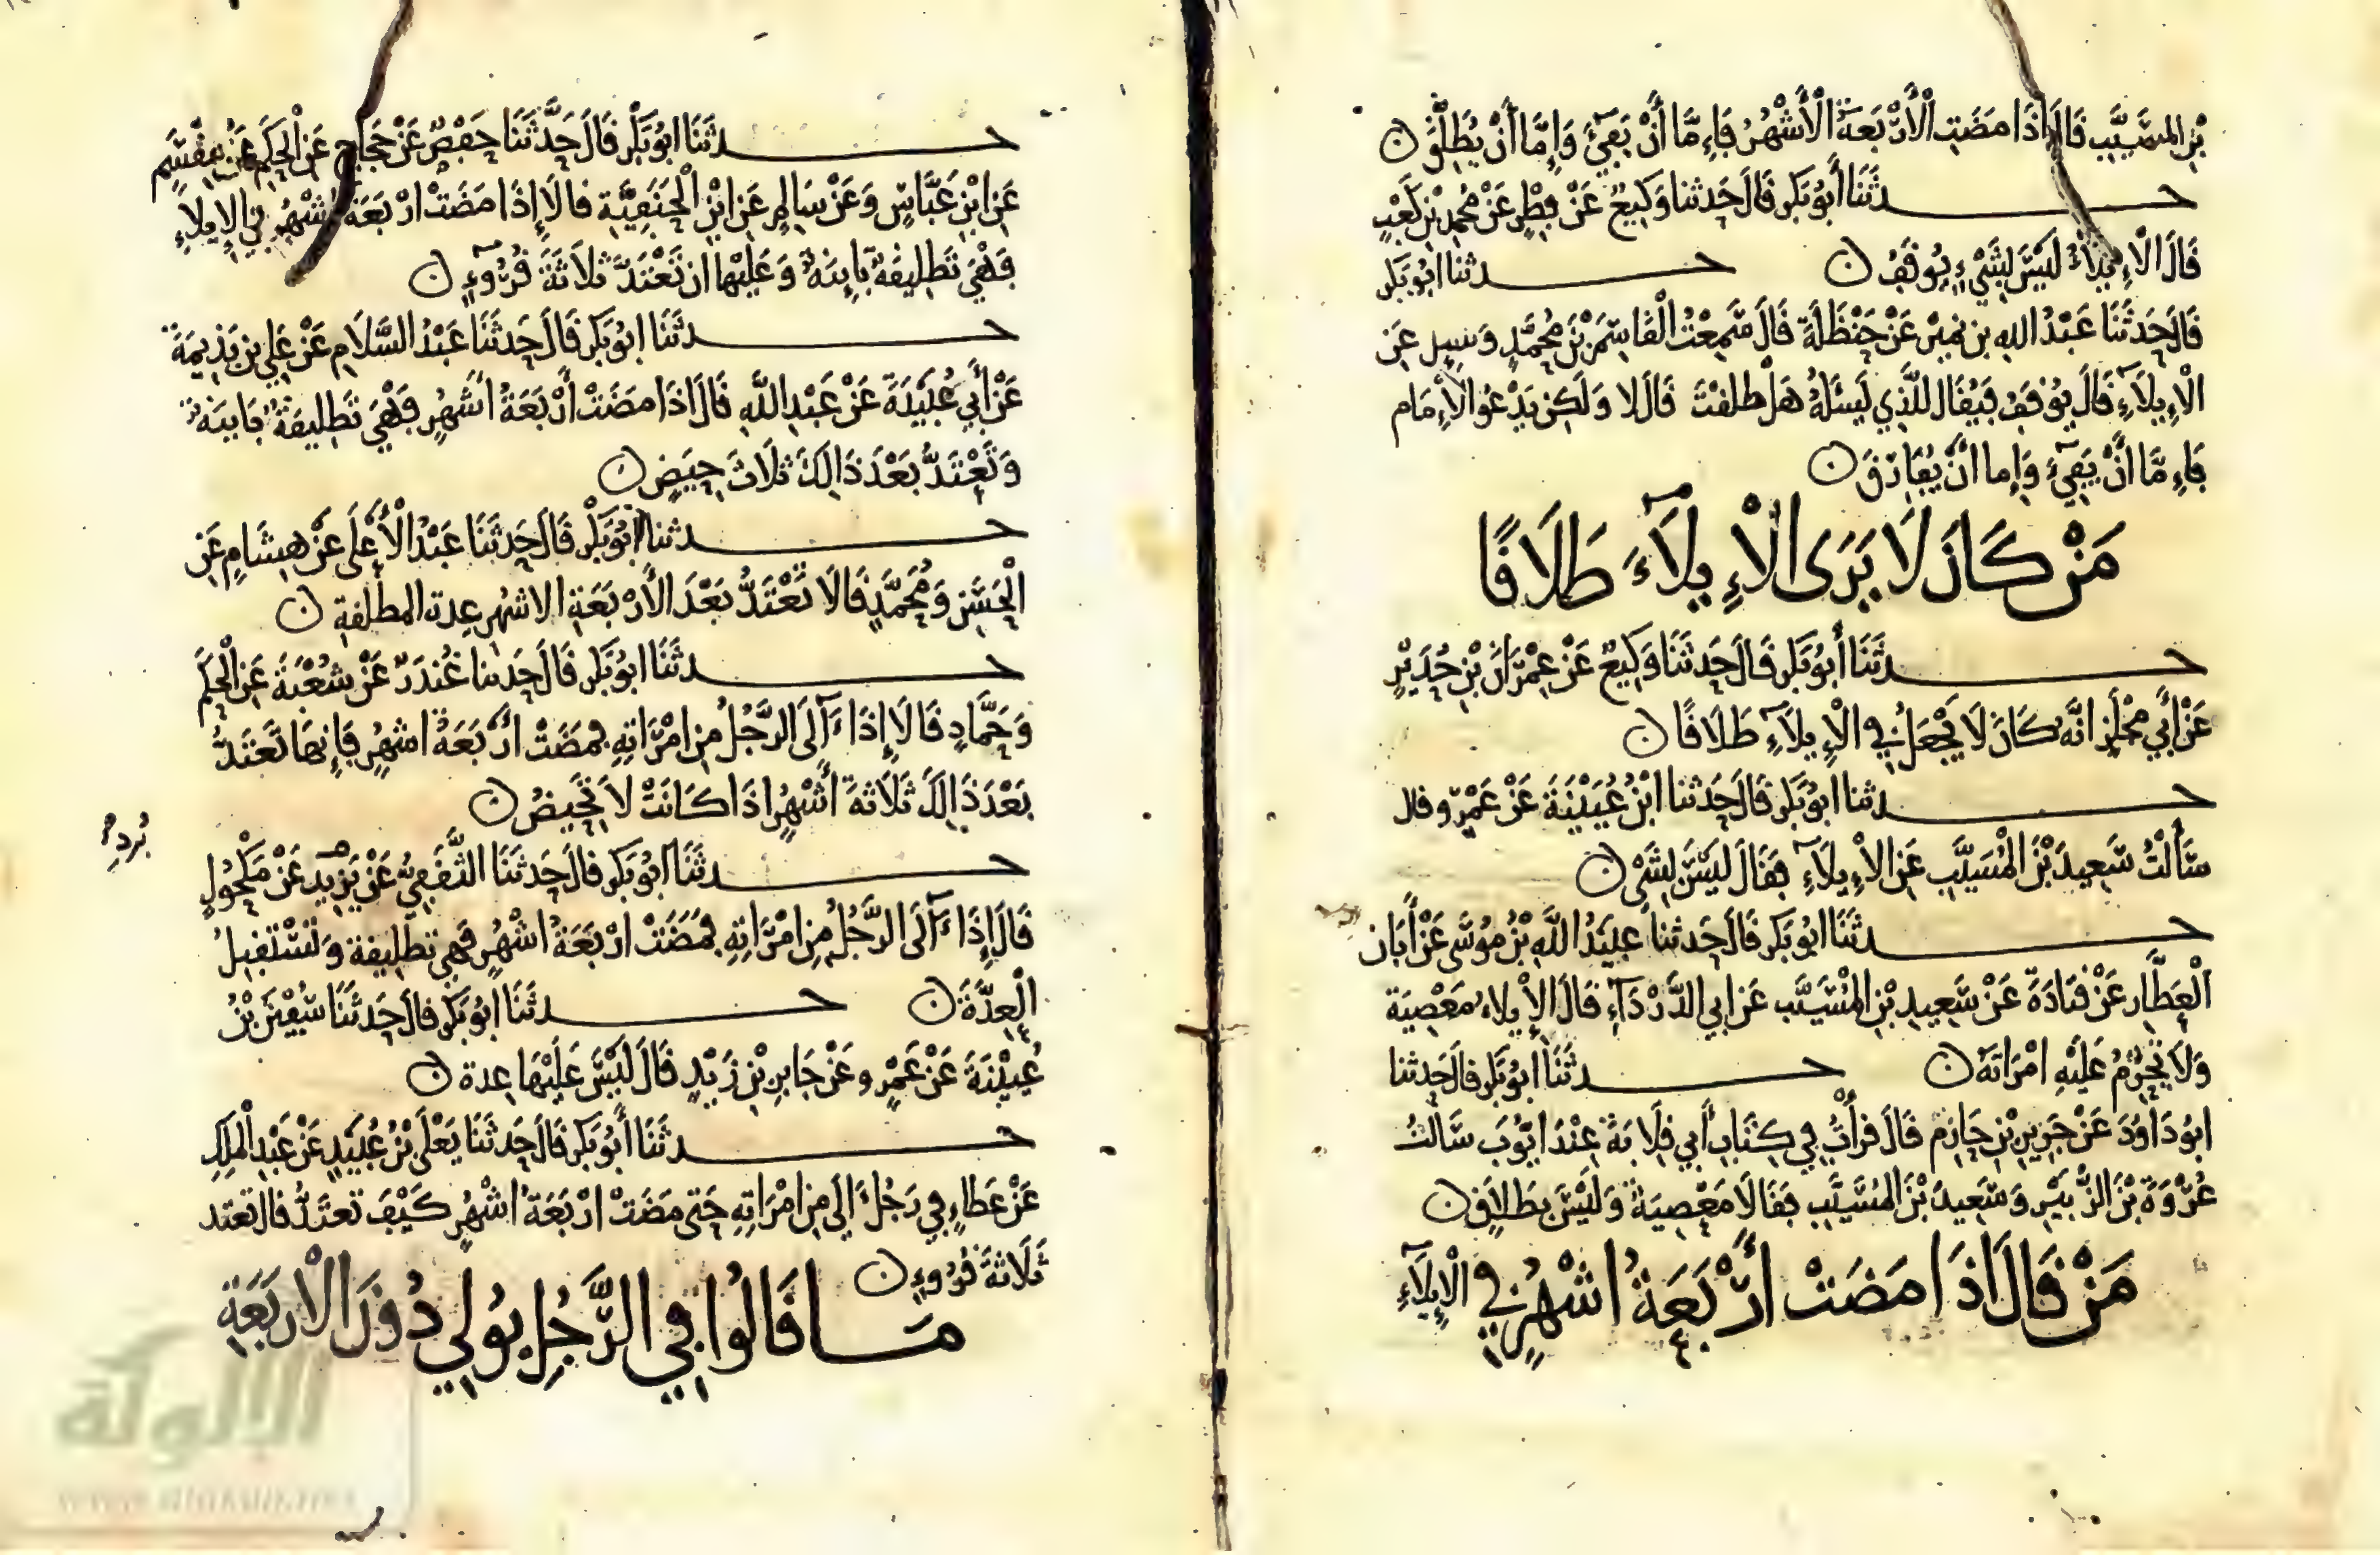 بْنِ الْمُسَيَّبِ قَالَا إِذَا مَضَتِ الْأَرْبَعَةُ الْأَشْهُرُ فَإِمَّا أَنْ يَفِيءَ وَإِمَّا أَنْ يُطَلِّقَ ن
حـــدثَنَا أَبُو بَكْرٍ قَالَ حَدثنا وَكِيعٌ عَنْ فِطْرٍ عَنْ مُحمدِ بْنِ كَعْبٍ
قَالَ الْإِيلَاءُ لَيْسَ بِشَيْءٍ يُوقَفُ ن حـــدثنا ابُو بَكْر
قَالَ حَدَثَنَا عَبْدُ اللهِ بن نمَيْر عَنْ حَنْظَلَةَ قَالَ سَمِعْتُ الْقَاسِمَ بْنَ مُحَمَّدٍ وَسُيِل عَنِ
الْإِيلَآءِ قَالَ يُوْقَفُ فَيُقَال لِلَّذِي يَسْئَلُهُ هَلْ طَلقْتَ قَالَ لا وَلَكِن يَدْعُوا الْإِمَام
فَإِمَّا أَنْ يَفِيْءَ وَإِما أَنْ يُفَارِقَ ن
مَنْ كَانَ لَا يَرَى الْإِيلَآءَ طَلَاقًا
حـــدثَنَا أَبُو بَكْر قَالَ حَدثَنَا وَكِيعٌ عَنْ عِمْرَانَ بْنِ حُدَيْرٍ
عَنْ أَبِي مِجْلَزٍ انَّهُ كَانَ لَا يَجْعَلُ فِي الْإِيلَآءِ طَلَاقًا ن
حـــدثنا ابُو بَكْر قَالَ حَدَثنا ابْنُ عُيَيْنَةَ عَنْ عَمْرٍو قال
سَأَلْتُ سَعِيدَ بْنَ الْمُسَيَّبِ عَنِ الْإِيلَآءِ فَقَالَ لَيْسَ بِشَيْءٍ ن
حـــدثَنَا ابُو بَكْر قَالَ حَدثنا عبَيْدُ اللَّهِ بْنُ مُوسَى عَنْ أَبَان
الْعَطَّار عَنْ قَتَادَةَ عَنْ سَعِيدِ بْنِ الْمُسَيَّب عَن ابِي الدَّرْدَآءِ قَالَ الْإِيلاءُ مَعْصِيَة
وَلَا تَحْرُمُ عَلَيْهِ امْرَاتُهُ ن حـــدثَنَا ابُو بَكْر قَالَ حَدثنا
ابُو دَاوُدَ عَنْ جَرِيرِ بْنِ حَازِم قَالَ قَرَأْتُ فِي كِتَابِ أَبِي قِلَابَةَ عِنْدَ ايُّوبَ سَأَلْتُ
عُرْوَةَ بْنَ الزُّبَيْرِ وَسَعِيدَ بْنَ الْمُسَيَّبِ فَقَالَا مَعْصِيَةٌ وَلَيْسَ بِطَلَاقٍ ن
مَنْ قَالَ اذَا مَضَتْ أَرْبَعَةُ اشْهُرٍ فِي الْإِيلَآءِ
حـــدثَنَا ابُو بَكْرٍ قَالَ حَدَّثَنَا حَفْصٌ عَنْ حَجاج عَنِ الْحَكَمِ عَنْ مِقْسَمٍ
عَنِ ابْنِ عَبَّاسٍ وَعَنْ سَالِمٍ عَنِ ابْنِ الْحَنَفِيَّةِ قالَا إِذَا مَضَتْ ارْبَعَةُ أَشْهُرٍ فِي الْإِيلَاءِ
فَهْيَ تَطْلِيقَةٌ بَايِنَةٌ وَعَلَيْهَا ان تَعْتَدَّ ثَلَاثَةَ قُرُوءٍ ن
حـــدثَنَا ابُو بَكْر قَالَ حَدثَنَا عَبْدُ السَّلَامِ عَنْ عَلِيِّ بن بَذِيمَةَ
عَنْ أَبِي عُبَيْدَةَ عَنْ عَبْدِ اللَّهِ قَالَ اذَا مَضَتْ أَرْبَعَةُ اشْهُرٍ فَهْيَ تَطْلِيقَةٌ بَايِنَةٌ
وَتَعْتَدُّ بَعْدَ ذَالِكَ ثَلَاثَ حِيَضٍ ن
حـــدثنا ابُو بَكْر قَالَ حَدثَنَا عَبْدُ الْأَعْلَى عَنْ هِشَامٍ عَنِ
الْحَسَنِ وَمُحَمَّدٍ قَالَا تَعْتَدُّ بَعْدَ الْأَرْبَعَةِ الاشهُرِ عِدة المطلقةِ ن
حـــدثَنَا ابُو بَكْر قَالَ حَدثنا غُنْدَرٌ عَنْ شُعْبَةَ عَنِ الْحَكَمِ
وَحَمَّادٍ قَالَا إِذَا ءَآلَى الرَّجُلُ مِنِ امْرَاتِهِ فَمَضَتْ ارْبَعَةُ اشهُرٍ فَإِنهَا تَعْتَدُّ
بَعْدَ ذَالِكَ ثَلَاثَةَ أَشْهُرٍ اذَا كَانَتْ لَا تَحِيضُ ن
بُرْدٍ
حـــدثَنَا ابُو بَكْر قالَ حَدثَنَا الثَّقَفِيُّ عَنْ يَزِيدَ عَنْ مَكْحُولٍ
قَالَ إِذَا ءَآلَى الرَّجُلُ مِنِ امْرَاتِهِ فَمَضَتْ ارْبَعَةُ اشْهُرٍ فَهِي تطليقة وَتَسْتَقْبِلُ
الْعِدَّةَ ن حـــدثَنَا ابُو بَكْر قالَ حَدثَنَا سُفْيَنُ بْنُ
عُيَيْنَةَ عَنْ عَمْرٍو عَنْ جَابِرِ بْنِ زَيْدٍ قَالَ لَيْسَ عَلَيْهَا عِدة ن
حـــدثَنَا أَبُو بَكْر قَالَ حَدثَنَا يَعْلَى بْنُ عُبَيْدٍ عَنْ عَبْدِ الْمَلِكِ
عَنْ عَطَاءٍ فِي رَجُلٍ ءَالَى مِنِ امْرَاتِهِ حَتى مَضَتْ ارْبَعَةُ اشْهُرٍ كَيْفَ تَعْتَدُّ قال تعْتَد
ثَلَاثَةَ قُرُوءٍ ن
مَـــا قَالُوا فِي الرَّجُلِ يُولِي دُونَ الْارْبَعَةِ
الألوكة
www.alukah.net